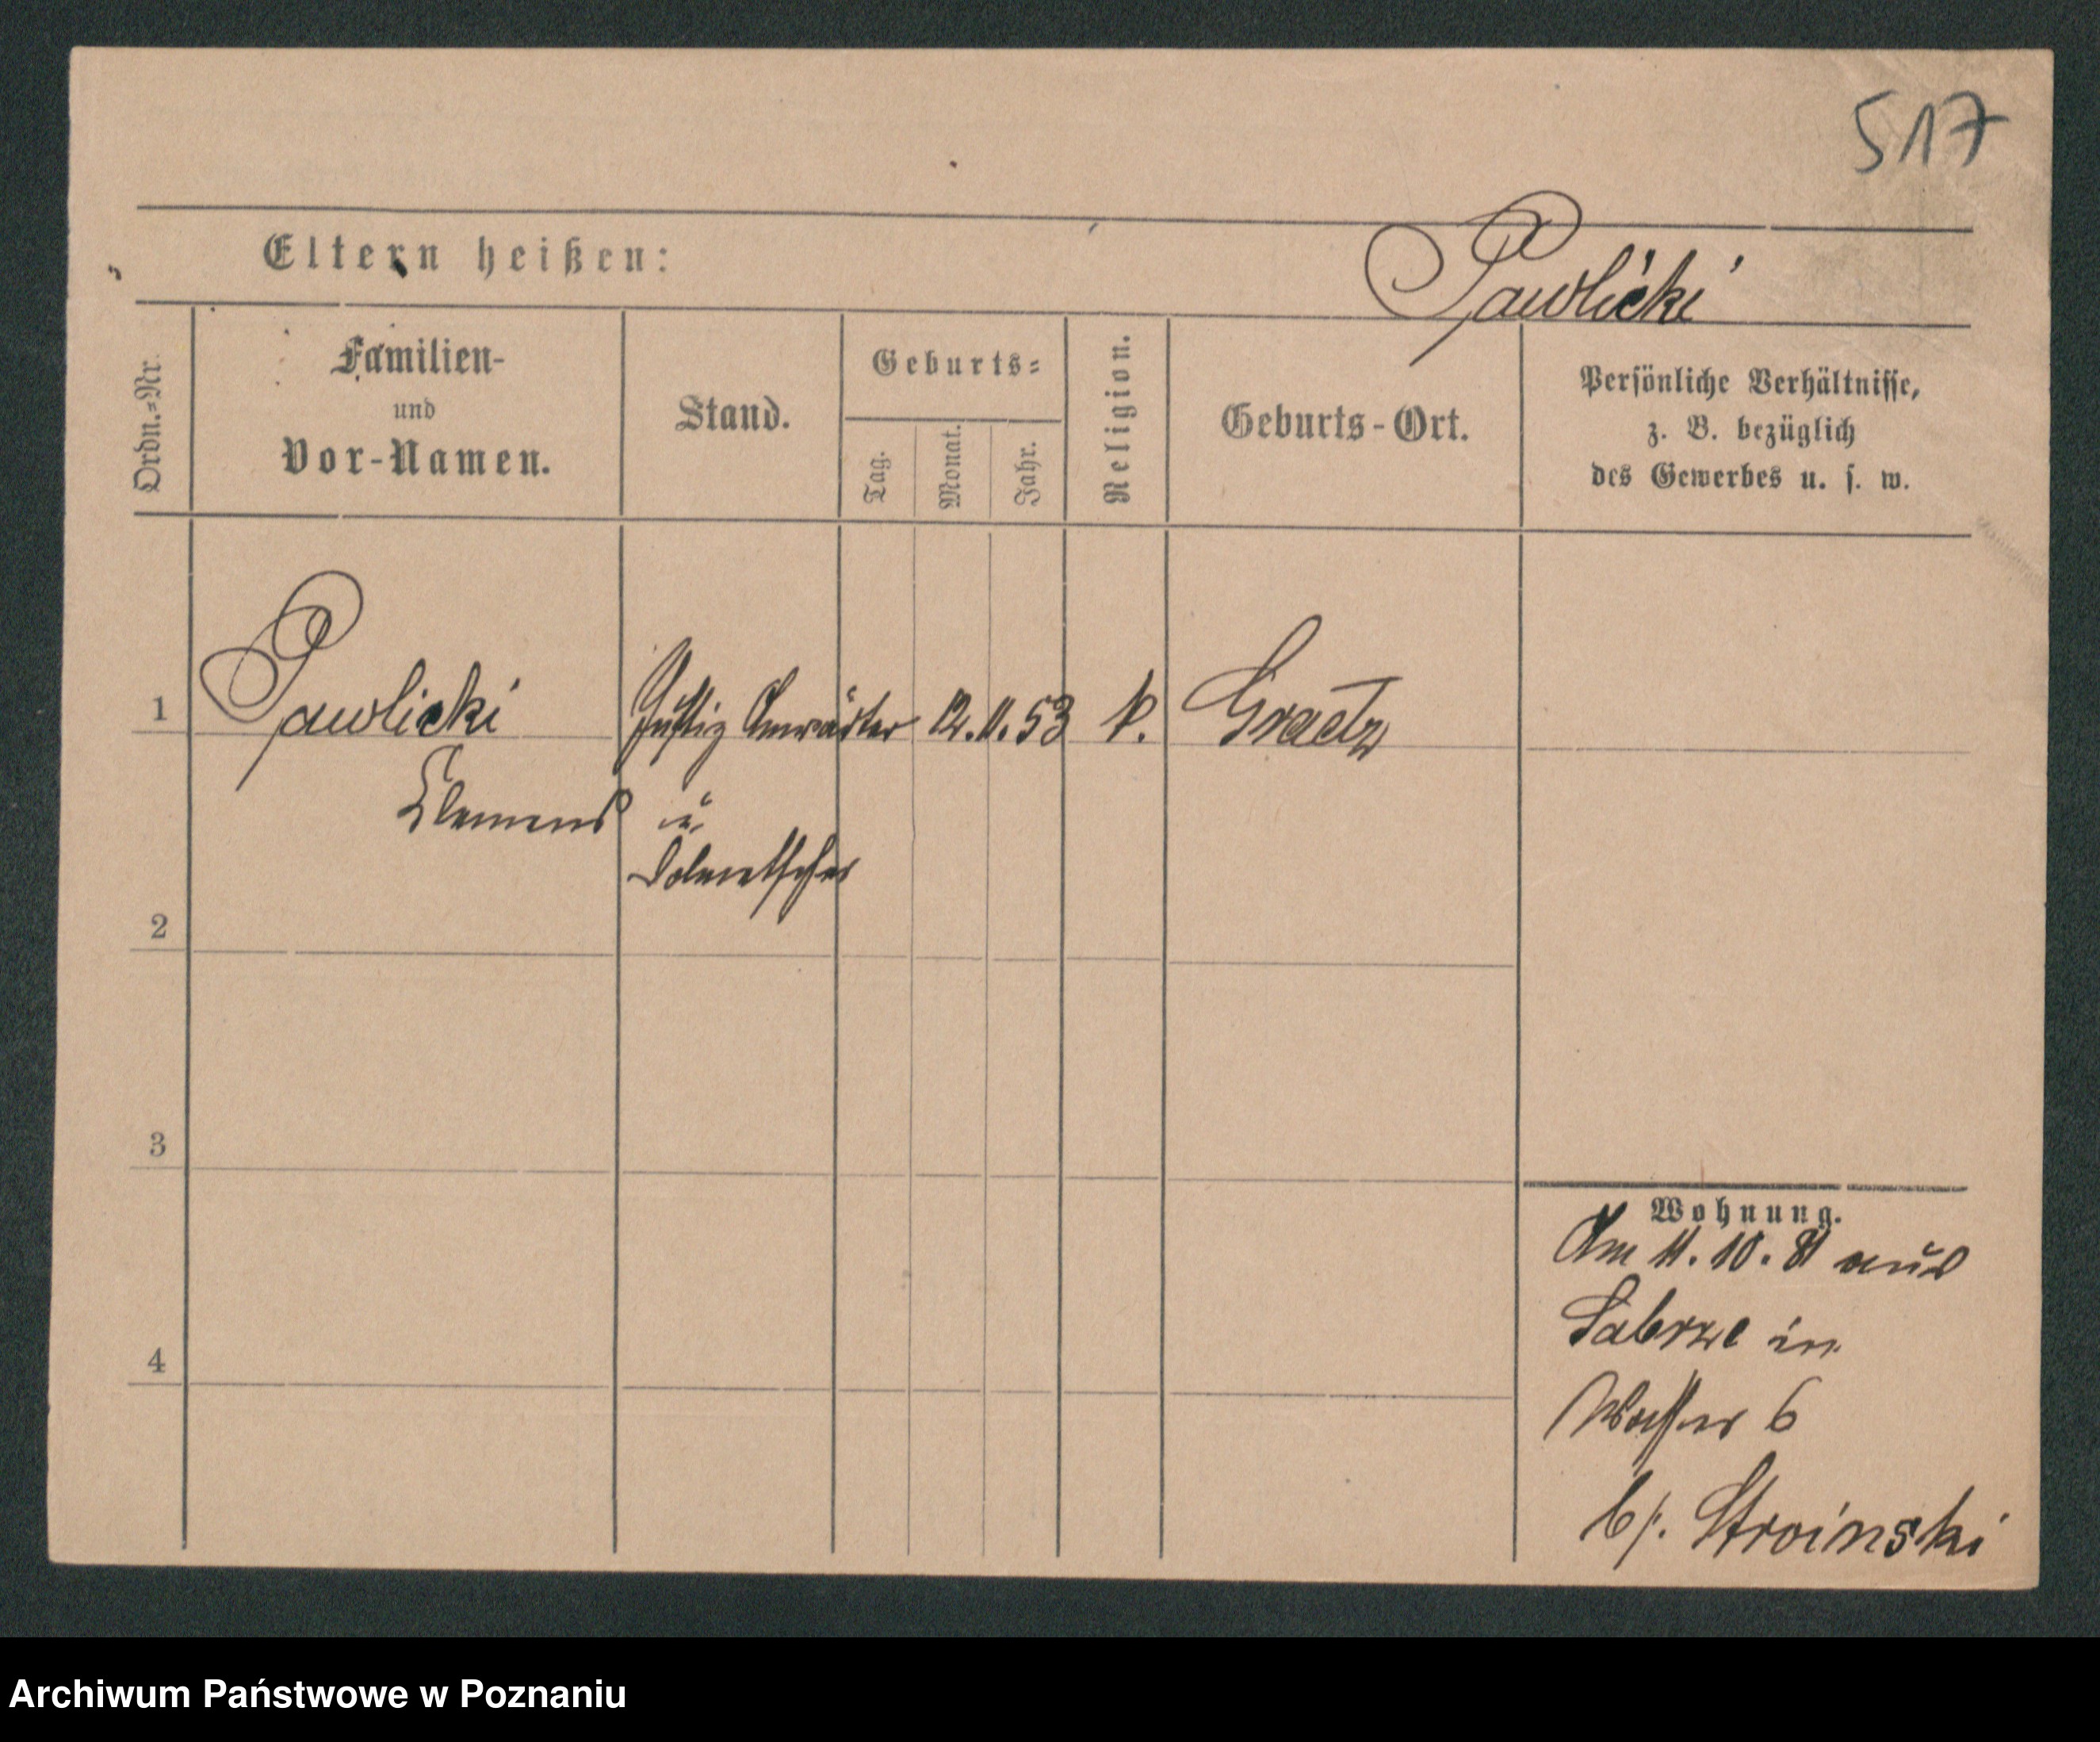 517
Eltern heißen:
Pawlicki
Ordn.-Nr.
Familien-
und
Vor-Namen.
Stand.
Geburts-
Tag.
Monat.
Jahr.
Religion.
Geburts-Ort.
Persönliche Verhältnisse,
z. B. bezüglich
des Gewerbes u. s. w.
1
Pawlicki
Justiz Anwärter
12.11.53
k.
Graetz
Clemens
u
Dolmetscher
2
3
4
Wohnung.
Am 11.10.81 aus
Sabrze in
Wasser 6
b/. Stroinski
Archiwum Państwowe w Poznaniu